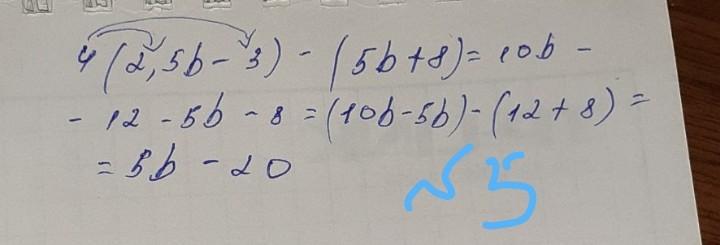 4(2,5b-3)-(5b+8)=10b-
-12-5b-8=(10b-5b)-(12+8)=
=5b-20
N5